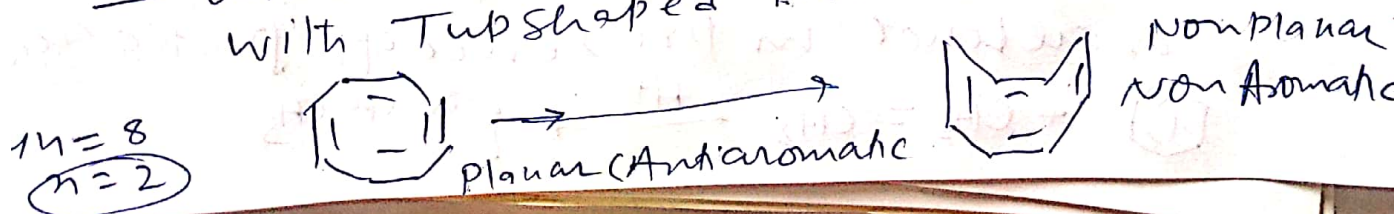 with Tub Shaped
Nonplanar
Non Aromatic
4n = 8
n = 2
Planar (Antiaromatic